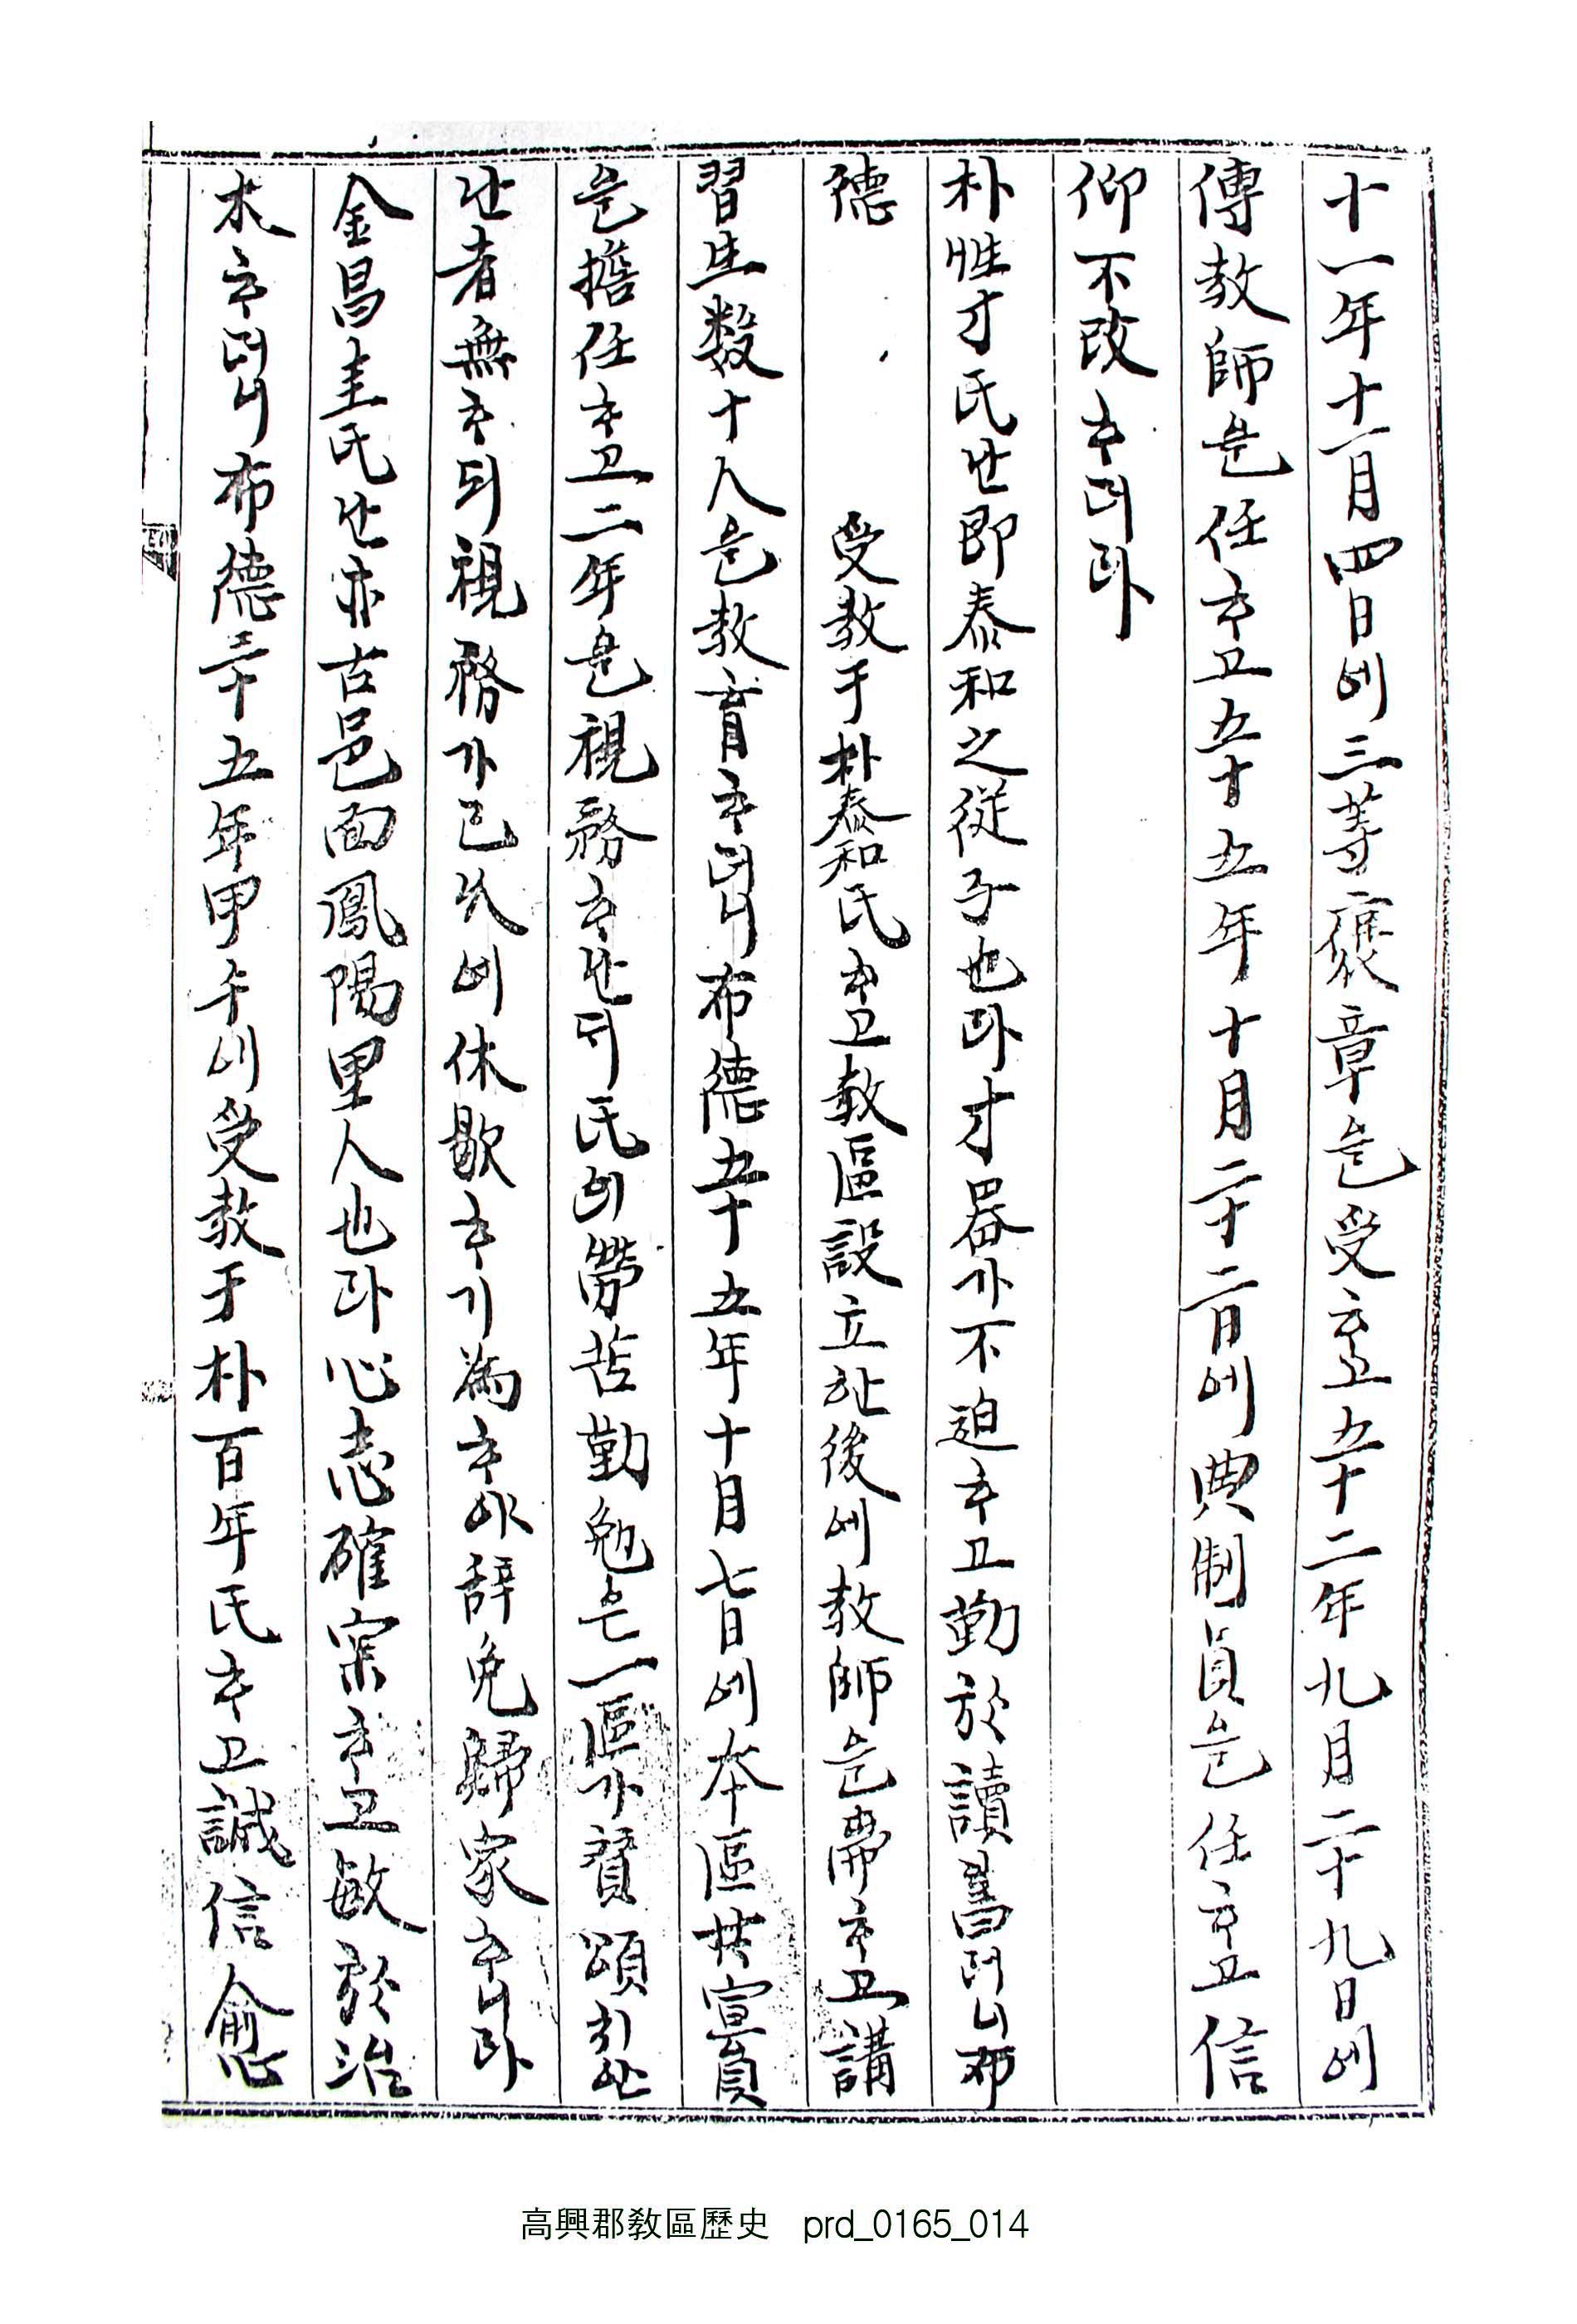 十一年十一月四日에三等褒章을受ᄒᆞ고五十二年九月二十九日에
傳敎師을任ᄒᆞ고五十五年十月二十二日에典制員을任ᄒᆞ고信
仰不改ᄒᆞ더라
朴性才氏난即泰和之從子也라才器가不迫ᄒᆞ고勤於讀書러니布
德 受敎于朴泰和氏ᄒᆞ고敎區設立한後에敎師을帶ᄒᆞ고講
習生数十人을敎育ᄒᆞ더니布德五十五年十月七日에本區共宣員
을擔任ᄒᆞ고二年을視務ᄒᆞ난디氏에勞苦勤勉은一區가賛頌치안
난者無ᄒᆞ되視務가已久에休歇ᄒᆞ기爲ᄒᆞ야辞免歸家ᄒᆞ니라
金昌圭氏난亦古邑面鳳陽里人也라心志確実ᄒᆞ고敏於治
木ᄒᆞ더니布德三十五年甲午에受敎于朴百年氏ᄒᆞ고誠信愈
高興郡敎區歷史 prd_0165_014